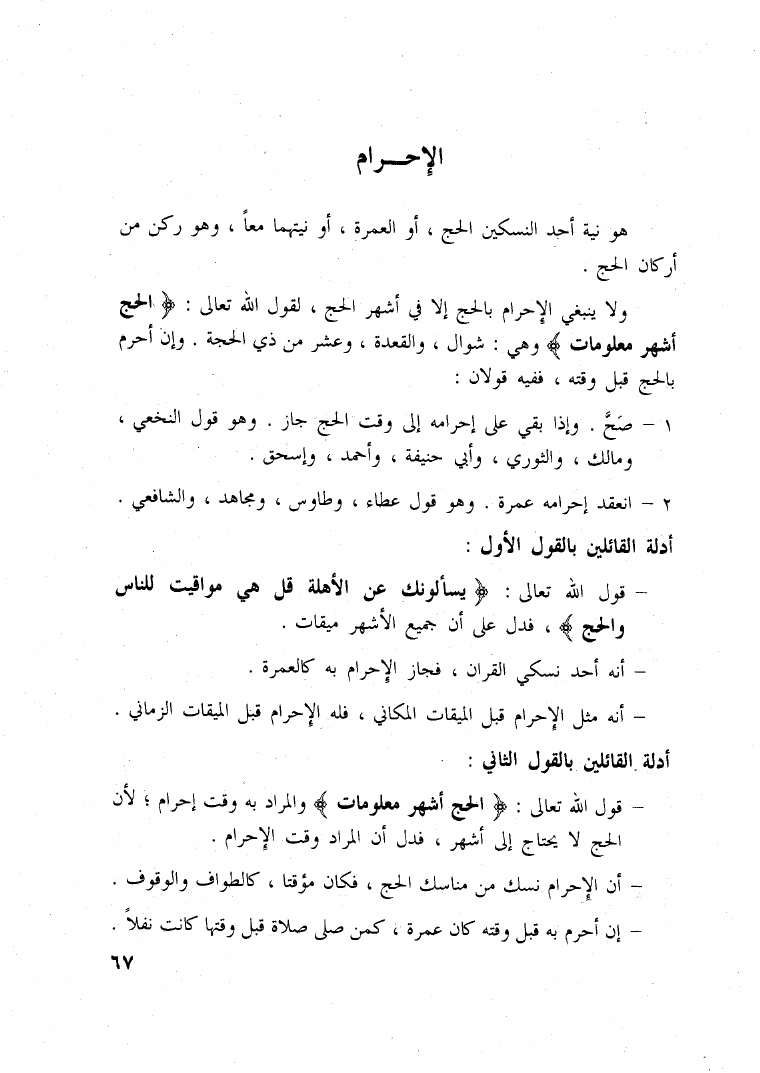 الإحـــرام
هو نية أحد النسكين الحج ، أو العمرة ، أو نيتهما معاً ، وهو ركن من
أركان الحج .
ولا ينبغي الإحرام بالحج إلا في أشهر الحج ، لقول الله تعالى : ﴿ الحج
أشهر معلومات ﴾ وهي : شوال ، والقعدة ، وعشر من ذي الحجة . وإن أحرم
بالحج قبل وقته ، ففيه قولان :
١ – صَحَّ . وإذا بقي على إحرامه إلى وقت الحج جاز . وهو قول النخعي ،
ومالك ، والثوري ، وأبي حنيفة ، وأحمد ، وإسحق .
٢ – انعقد إحرامه عمرة . وهو قول عطاء ، وطاوس ، ومجاهد ، والشافعي .
أدلة القائلين بالقول الأول :
– قول الله تعالى : ﴿ يسألونك عن الأهلة قل هي مواقيت للناس
والحج ﴾ ، فدل على أن جميع الأشهر ميقات .
– أنه أحد نسكي القران ، فجاز الإحرام به كالعمرة .
– أنه مثل الإحرام قبل الميقات المكاني ، فله الإحرام قبل الميقات الزماني .
أدلة القائلين بالقول الثاني :
– قول الله تعالى : ﴿ الحج أشهر معلومات ﴾ والمراد به وقت إحرام ؛ لأن
الحج لا يحتاج إلى أشهر ، فدل أن المراد وقت الإحرام .
– أن الإحرام نسك من مناسك الحج ، فكان مؤقتا ، كالطواف والوقوف .
– إن أحرم به قبل وقته كان عمرة ، كمن صلى صلاة قبل وقتها كانت نفلاً .
٦٧